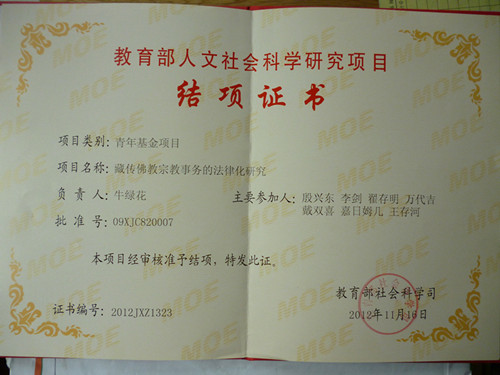 教育部人文社会科学研究项目
结项证书
项目类别: 青年基金项目
项目名称: 藏传佛教宗教事务的法律化研究
负责人: 牛绿花
主要参加人: 殷兴东 李剑 翟存明 万代吉
戴双喜 嘉日姆几 王存河
批准号: 09XJC820007
本项目经审核准予结项，特发此证。
教育部社会科学司
证书编号: 2012JXZ1323
2012年11月16日
MOE